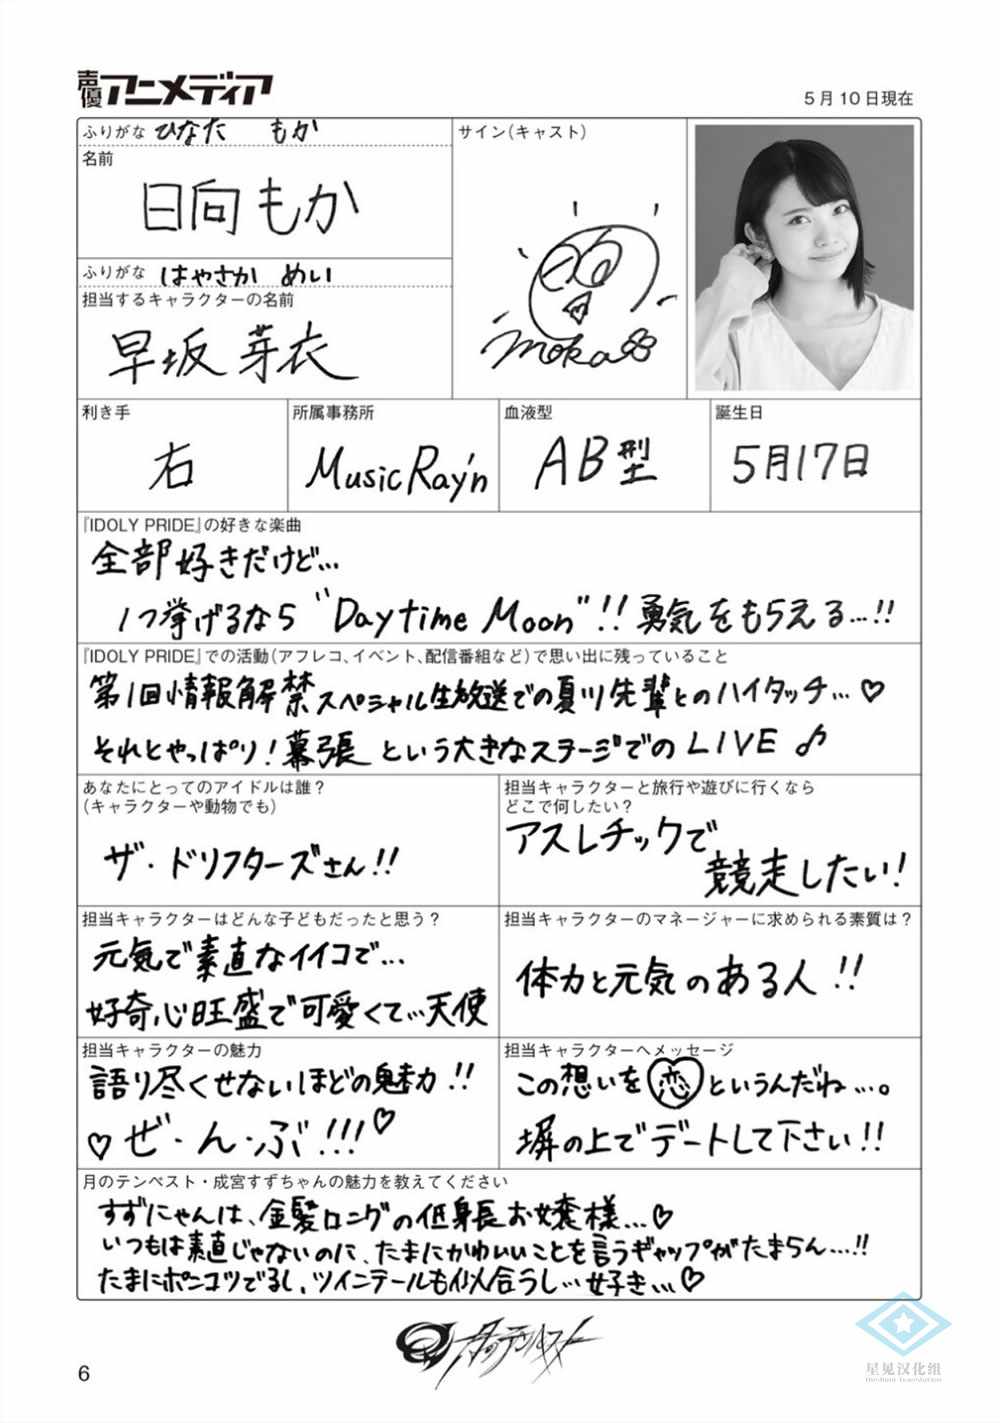 声優アニメディア
5月10日現在
ふりがな ひなた もか
名前
日向もか
サイン(キャスト)
moka
ふりがな はやさか めい
担当するキャラクターの名前
早坂 芽衣
利き手
右
所属事務所
Music Ray'n
血液型
AB型
誕生日
5月17日
『IDOLY PRIDE』の好きな楽曲
全部好きだけど…
1つ挙げるなら"Daytime Moon"!!勇気をもらえる…!!
『IDOLY PRIDE』での活動(アフレコ、イベント、配信番組など)で思い出に残っていること
第1回情報解禁スペシャル生放送での夏川先輩とのハイタッチ…♡
それとやっぱり!幕張という大きなステージでのLIVE♪
あなたにとってのアイドルは誰?
(キャラクターや動物でも)
ザ・ドリフターズさん!!
担当キャラクターと旅行や遊びに行くなら
どこで何したい?
アスレチックで
競走したい!
担当キャラクターはどんな子どもだったと思う?
元気で素直なイイコで…
好奇心旺盛で可愛くて…天使
担当キャラクターのマネージャーに求められる素質は?
体力と元気のある人!!
担当キャラクターの魅力
語り尽くせないほどの魅力!!
♡ぜ・ん・ぶ!!!♡
担当キャラクターへメッセージ
この想いを恋というんだね…。
塀の上でデートして下さい!!
月のテンペスト・成宮すずちゃんの魅力を教えてください
すずにゃんは、金髪ロングの低身長お嬢様…♡
いつもは素直じゃないのに、たまにかわいいことを言うギャップがたまらん…!!
たまにポンコツでるし、ツインテールも似合うし…好き…♡
月のテンペスト
6
星见汉化组